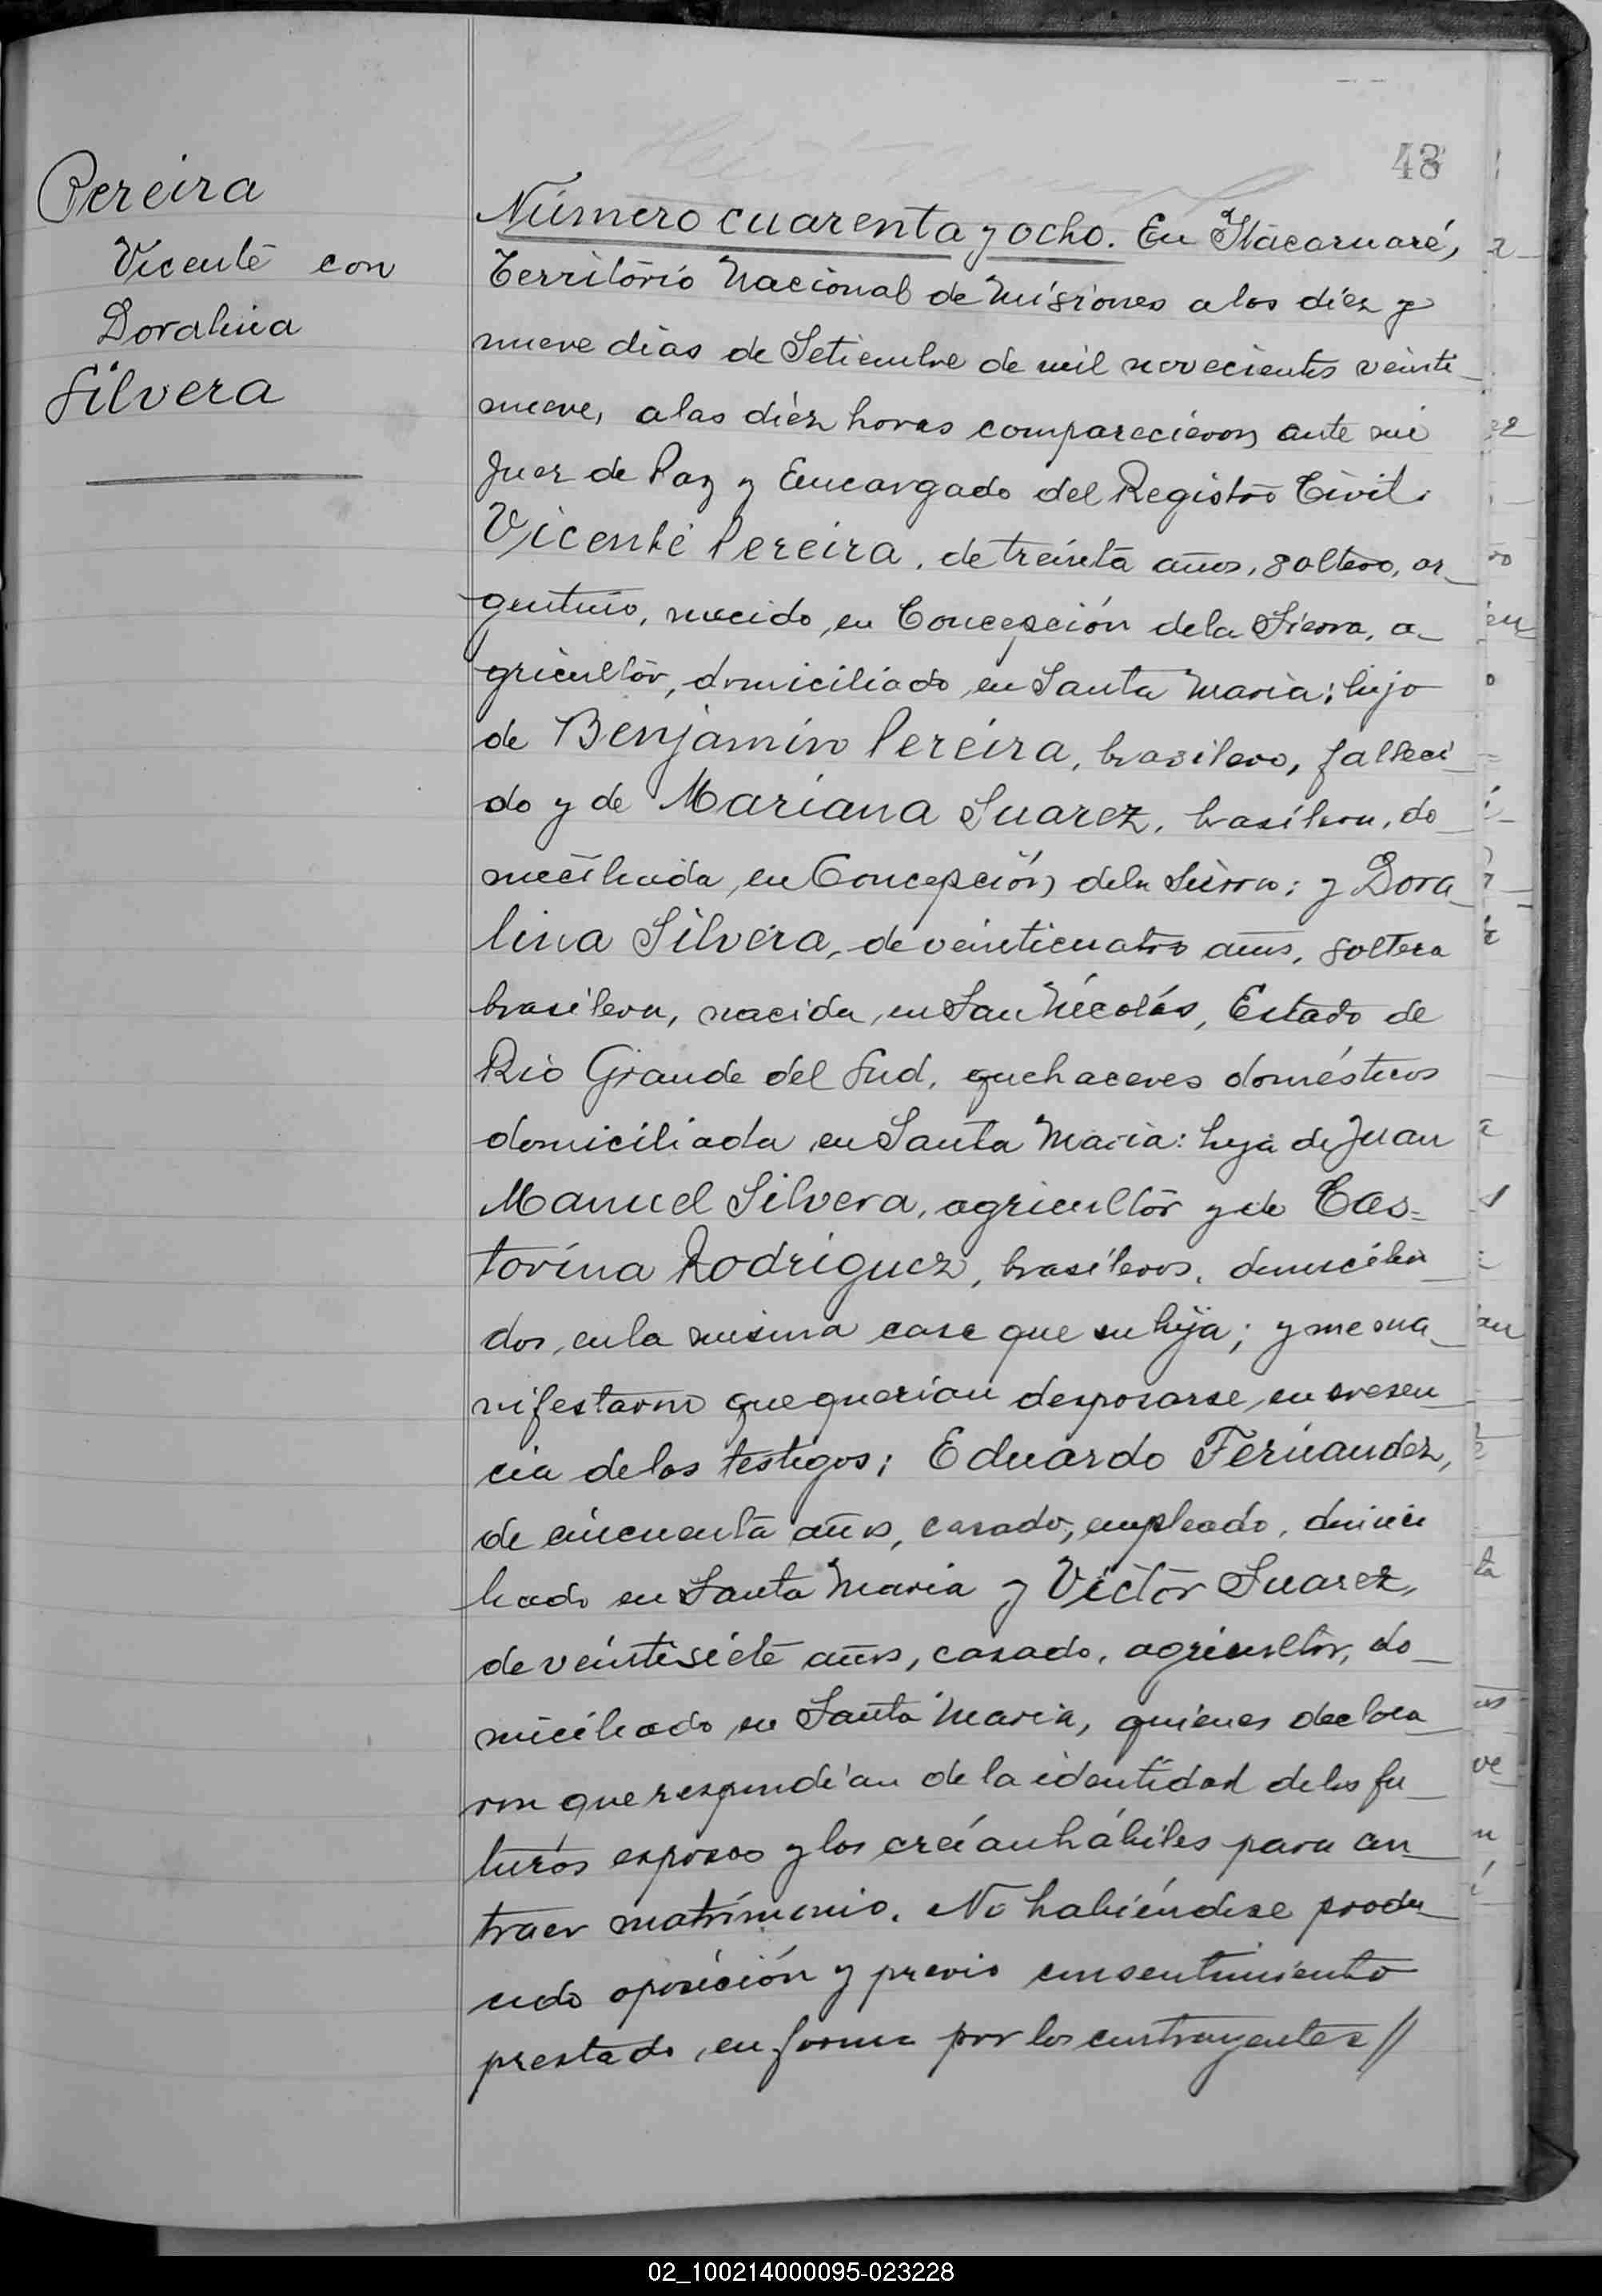 48
Pereira
Vicente con
Doralina
Silvera
Número cuarenta y ocho. En Itacaruaré,
Territorio Nacional de Misiones a los diez y
nueve dias de Setiembre de mil novecientos veinti_
nueve, a las diéz horas comparecieron ante mi
Juez de Paz y Encargado del Registro Civil.
Vicente Pereira, de treinta años, soltero, ar_
gentino, nacido, en Concepción de la Sierra, a_
gricultor, domiciliado, en Santa Maria; hijo
de Benjamin Pereira, brasilero, falleci_
do y de Mariana Suarez, brasilera, do_
miciliada, en Concepción, de la Sierra; y Dora_
lina Silvera, de veinticuatro años, soltera
brasilera, nacida, en San Nicolás, Estado de
Rio Grande del Sud, quehaceres domésticos
domiciliada en Santa Maria: hija de Juan
Manuel Silvera, agricultor y de Cas=
torina Rodriguez, brasileros, domicilia_
dos, en la misma casa que su hija; y me ma_
nifestaron que querian desposarse, en presen_
cia de los testigos; Eduardo Fernandez,
de cincuenta años, casado, empleado, domici
liado en Santa Maria y Victor Suarez,
de veintisiete años, casado, agricultor, do_
miciliado en Santa Maria, quienes declara_
ron que respondían de la identidad de los fu_
turos esposos y los creían hábiles para con_
traer matrimonio. No habiéndose produ_
cido oposición y previo consentimiento
prestado, en forma por los contrayentes //
02_100214000095-023228